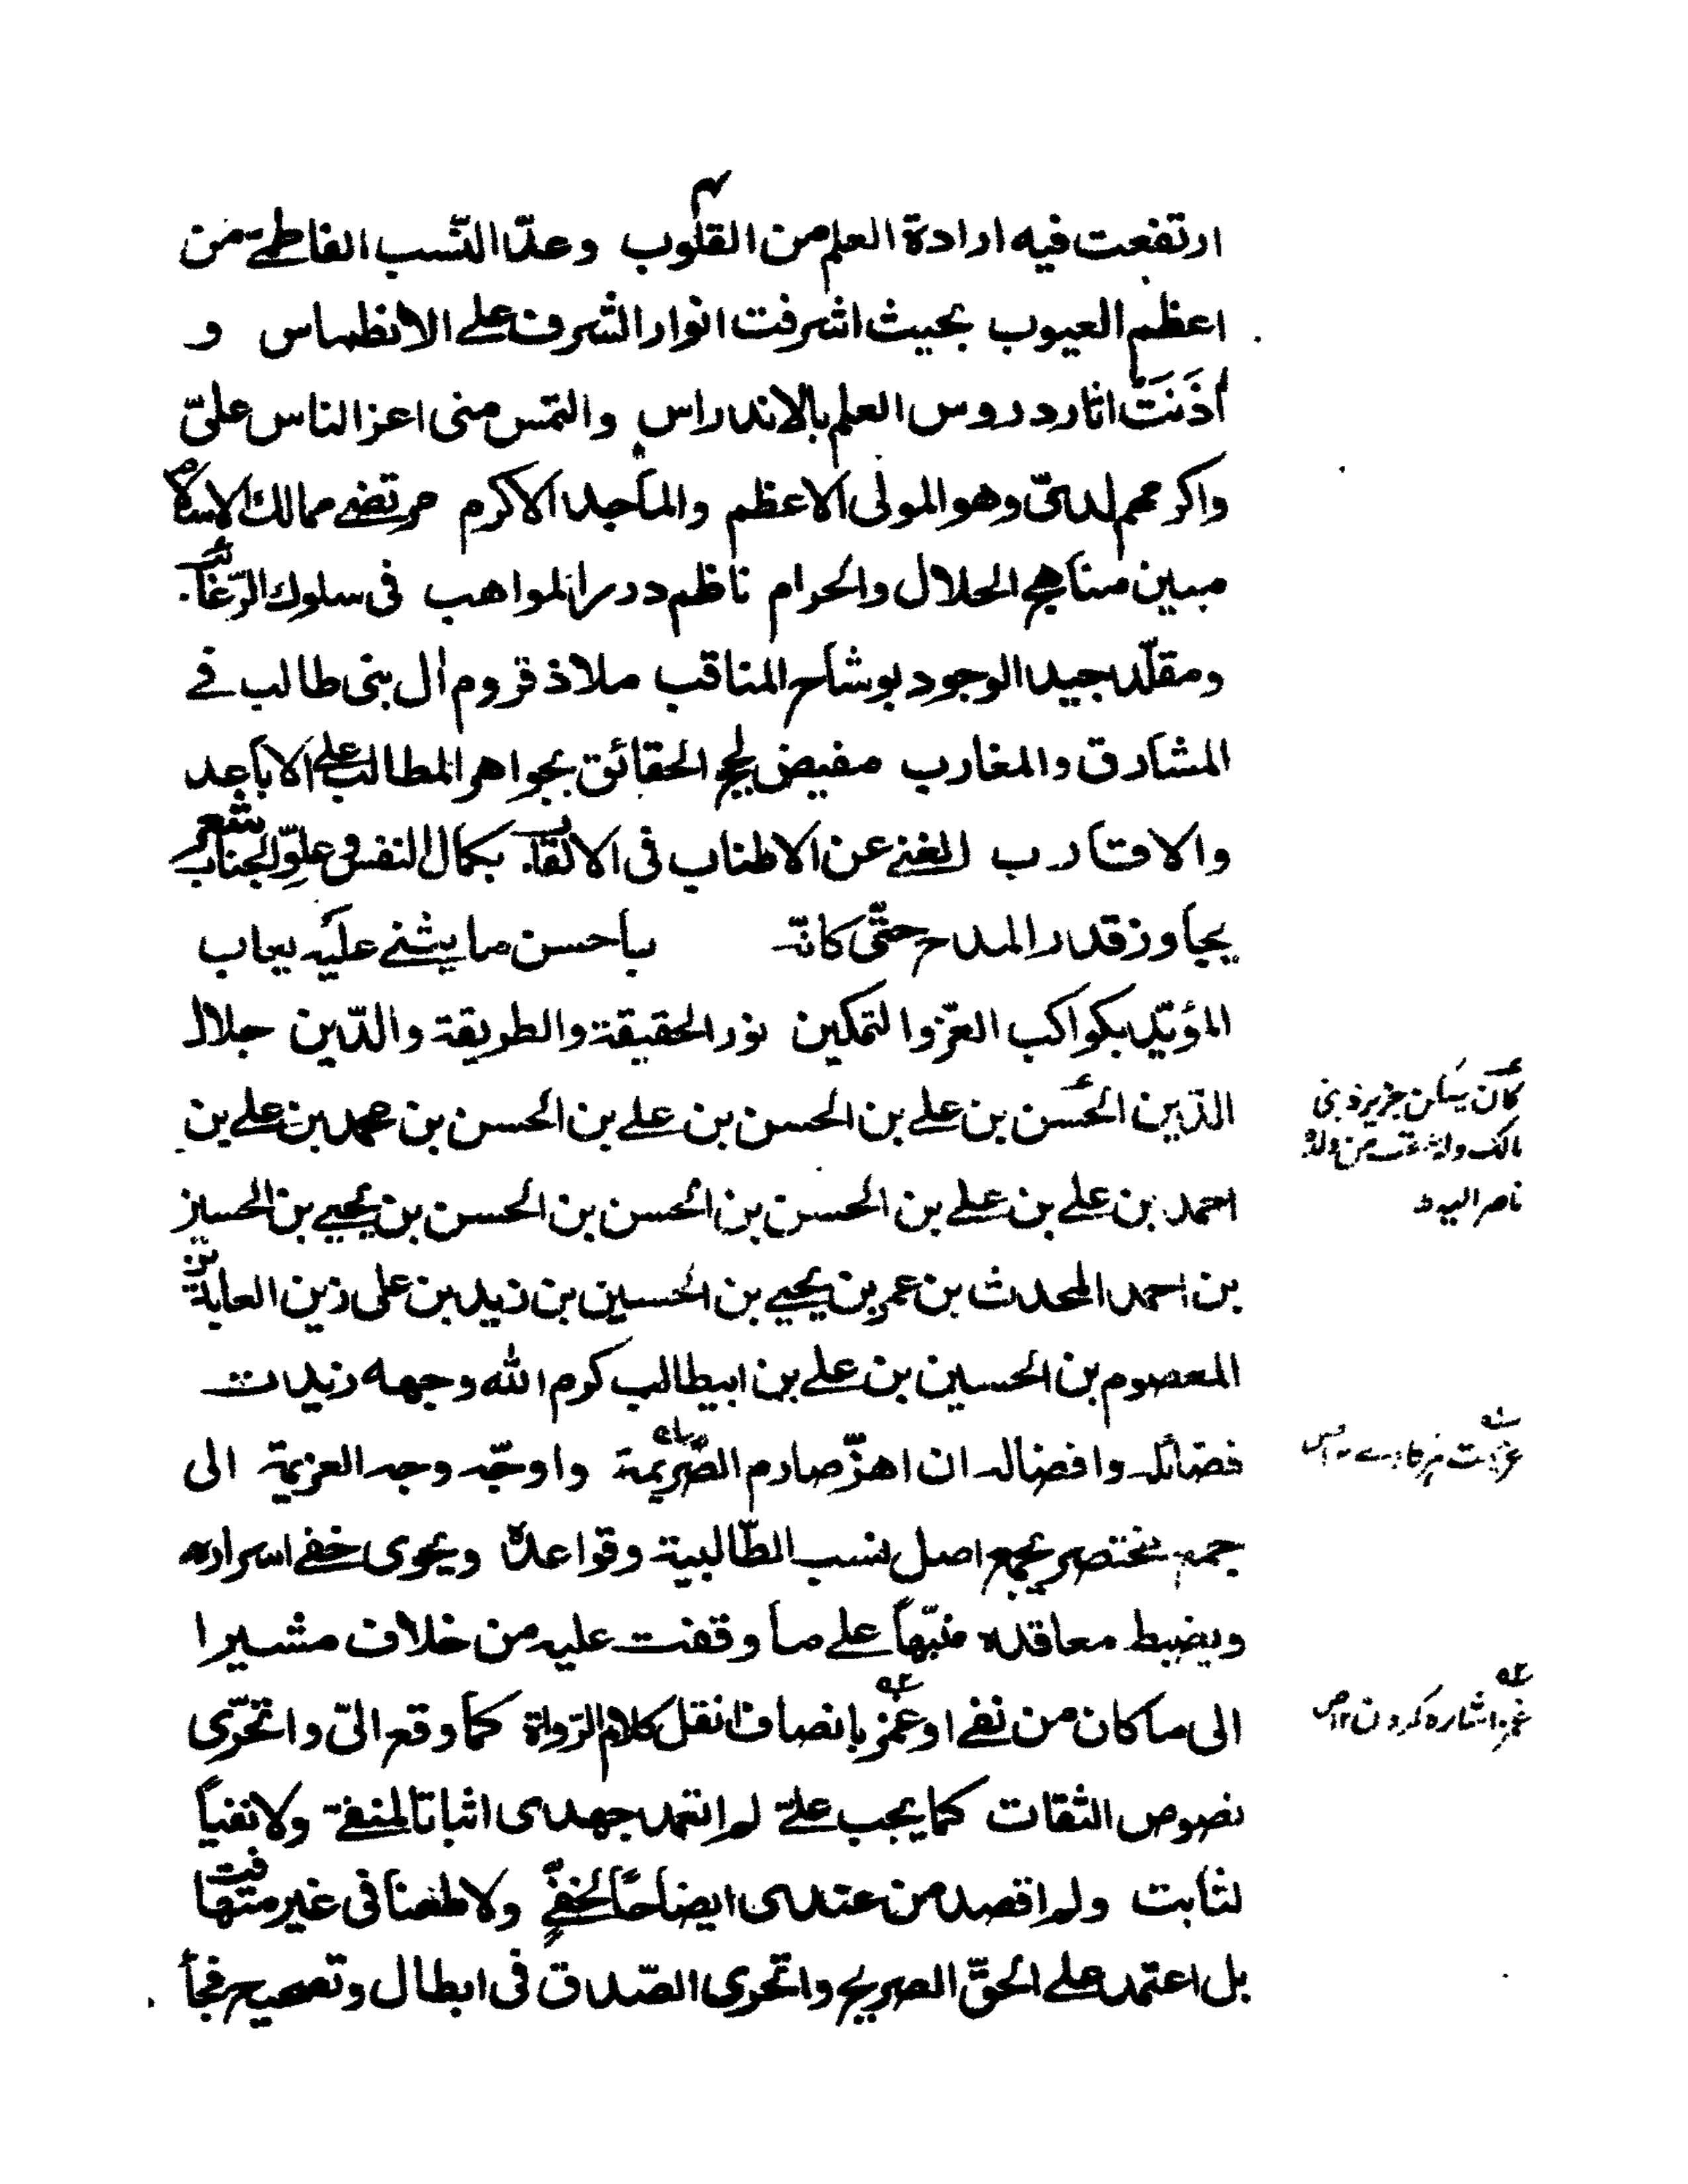 ۴
ارتفعت فيه ارادة العلم من القلوب وعدّ النّسب الفاطمي من
اعظم العيوب بحيث اشرفت انوار الشرف على الانطماس و
أذَنَتْ اثار دروس العلم بالاندراس والتمس منى اعز الناس علىّ
واكرمهم لدىّ وهو المولى الاعظم والماجد الاكرم مرتضى ممالك الاسلام
مبين مناهج الحلال والحرام ناظم درر المواهب فى سلوك الرّغائب
ومقلّد جيد الوجود بوشاح المناقب ملاذ قروم ال بنى طالب فے
المشارق والمغارب مفيض لجج الحقائق بجواهر المطالب على الاباعد
والاقارب المغنى عن الاطناب فى الالقاب بكمال النفس وعلوّ الجناب شعر
يجاوز قدر المدح حتّى كانّه باحسن ما يثنى عليه يعاب
المؤيّد بكواكب العزّ والتمكين نور الحقيقة والطريقة والدّين جلال
الدّين الحسن بن على بن الحسن بن على بن الحسن بن محمد بن على بن
احمد بن على بن على بن الحسن بن الحسن بن الحسن بن يحيى بن الحسين
بن احمد المحدث بن عمر بن يحيى بن الحسين بن زيد بن على زين العابدين
المعصوم بن الحسين بن على بن ابيطالب كرم الله وجهه زيدت
فضائله وافضاله ان اهزّ صارم الصّريمة واوجّه وجه العزيمة الى
جمع مختصر يجمع اصل نسب الطّالبية وقواعده ويحوى خفى اسراره
ويضبط معاقده منبّهاً على ما وقفت عليه من خلاف مشيرا
الى ما كان من نفى او غمز بانصاف انقل كلام الرّواة كما وقع الىّ واتحرّى
نصوص الثقات كما يجب علىّ لم اتعمد جهدى اثباتا لمنفى ولا نفياً
لثابت ولم اقصد من عندى ايضاحاً لخفىٍّ ولا طعنا فى غير متهافت
بل اعتمد على الحقّ الصريح واتحرى الصّدق فى ابطال وتصحيح فجأ
كان يسكن جزيرة بنى
مالك من ولده
ناصر
غمز اشاره كردن ١٢ ص